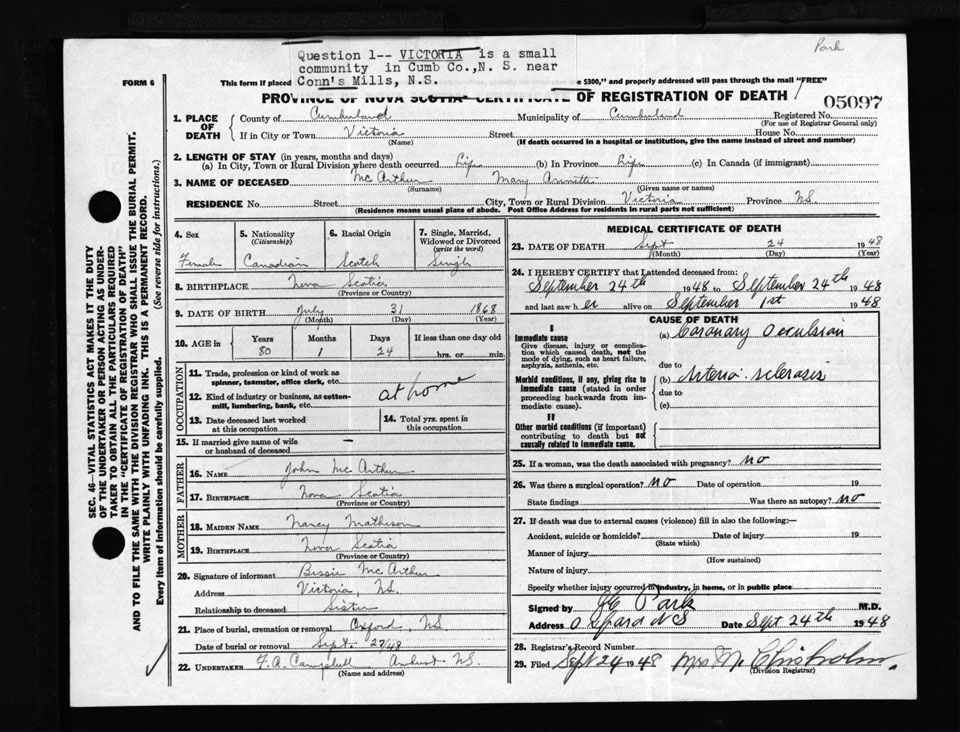 Park
Question 1-- VICTORIA is a small
community in Cumb Co.,N. S. near
Conn's Mills, N.S.
FORM 6
This form if placed
e $300," and properly addressed will pass through the mail "FREE"
PROVINCE OF NOVA SCOTIA- CERTIFICATE OF REGISTRATION OF DEATH
05097
1. PLACE OF DEATH
County of Cumberland Municipality of Cumberland Registered No.
(For use of Registrar General only)
If in City or Town Victoria Street House No.
(Name) (If death occurred in a hospital or institution, give the name instead of street and number)
2. LENGTH OF STAY (in years, months and days)
(a) In City, Town or Rural Division where death occurred Life (b) In Province Life (c) In Canada (if immigrant)
3. NAME OF DECEASED Mc Arthur Mary Annetta
(Surname) (Given name or names)
RESIDENCE No. Street City, Town or Rural Division Victoria Province N.S.
(Residence means usual place of abode. Post Office Address for residents in rural parts not sufficient)
4. Sex Female
5. Nationality (Citizenship) Canadian
6. Racial Origin Scotch
7. Single, Married, Widowed or Divorced (write the word) Single
8. BIRTHPLACE Nova Scotia
(Province or Country)
9. DATE OF BIRTH July 31 1868
(Month) (Day) (Year)
10. AGE in Years 80 Months 1 Days 24 If less than one day old hrs. or min.
OCCUPATION
11. Trade, profession or kind of work as spinner, teamster, office clerk, etc. at home
12. Kind of industry or business, as cotton-mill, lumbering, bank, etc.
13. Date deceased last worked at this occupation
14. Total yrs. spent in this occupation
15. If married give name of wife or husband of deceased —
FATHER
16. NAME John Mc Arthur
17. BIRTHPLACE Nova Scotia
(Province or Country)
MOTHER
18. MAIDEN NAME Nancy Matheson
19. BIRTHPLACE Nova Scotia
(Province or Country)
20. Signature of informant Bessie Mc Arthur
Address Victoria, N.S.
Relationship to deceased Sister
21. Place of burial, cremation or removal Oxford, NS
Date of burial or removal Sept. 27/48
22. UNDERTAKER F. A. Campbell Amherst N.S.
(Name and address)
MEDICAL CERTIFICATE OF DEATH
23. DATE OF DEATH Sept 24 1948
(Month) (Day) (Year)
24. I HEREBY CERTIFY that I attended deceased from
September 24th 1948 to September 24th 1948
and last saw her alive on September 1st 1948
CAUSE OF DEATH
I
Immediate cause
Give disease, injury or complication which caused death, not the mode of dying, such as heart failure, asphyxia, asthenia, etc.
(a) Coronary Occulsion
due to
Morbid conditions, if any, giving rise to immediate cause (stated in order proceeding backwards from immediate cause).
(b) Arterio-sclerosis
due to
(c)
II
Other morbid conditions (if important) contributing to death but not causally related to immediate cause.
25. If a woman, was the death associated with pregnancy? no
26. Was there a surgical operation? no Date of operation 19
State findings Was there an autopsy? no
27. If death was due to external causes (violence) fill in also the following:—
Accident, suicide or homicide? Date of injury 19
(State which)
Manner of injury
(How sustained)
Nature of injury
Specify whether injury occurred in industry, in home, or in public place
Signed by Park M.D.
Address NS Date Sept 24th 1948
28. Registrar's Record Number
29. Filed Sept 24 1948 Mrs M Chisholm.
(Division Registrar)
SEC. 46—VITAL STATISTICS ACT MAKES IT THE DUTY
OF THE UNDERTAKER OR PERSON ACTING AS UNDER-
TAKER TO OBTAIN ALL THE PARTICULARS REQUIRED
IN THE "CERTIFICATE OF REGISTRATION OF DEATH"
AND TO FILE THE SAME WITH THE DIVISION REGISTRAR WHO SHALL ISSUE THE BURIAL PERMIT.
WRITE PLAINLY WITH UNFADING INK. THIS IS A PERMANENT RECORD.
Every item of Information should be carefully supplied. (See reverse side for instructions.)